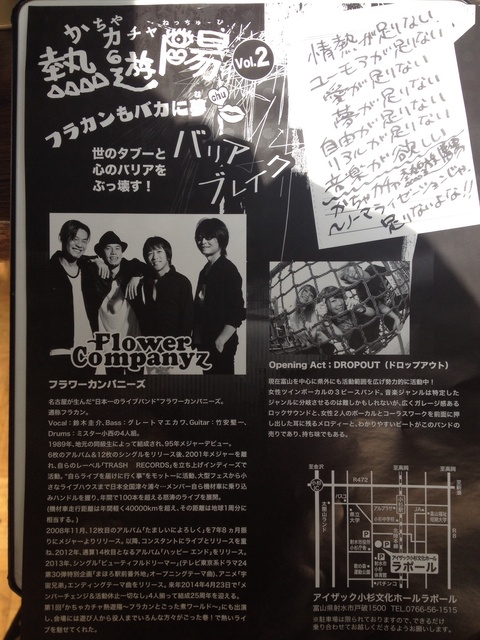 かちゃカチャ
ねっちゅーひ
熱遊
Vol.2
フラカンもバカに夢
chu
バリア
ブレイク
世のタブーと
心のバリアを
ぶっ壊す！
情熱が足りない
ユーモアが足りない
愛が足りない
夢が足りない
自由が足りない
リアルが足りない
音楽が欲しい
ノーマライゼーションじゃ
足りないよな!!
Flower
Companyz
フラワーカンパニーズ
名古屋が生んだ"日本一のライブバンド"フラワーカンパニーズ。
通称フラカン。
Vocal：鈴木圭介、Bass：グレートマエカワ、Guitar：竹安堅一、
Drums：ミスター小西の4人組。
1989年、地元の同級生によって結成され、95年メジャーデビュー。
6枚のアルバム&12枚のシングルをリリース後、2001年メジャーを離
れ、自らのレーベル「TRASH RECORDS」を立ち上げインディーズで
活動。"自らライブを届けに行く事"をモットーに活動。大型フェスから小
さなライブハウスまで日本全国津々浦々…メンバー自ら機材車に乗り込
みハンドルを握り、年間で100本を超える怒涛のライブを展開。
(機材車走行距離は年間軽く40000kmを超え、その距離は地球1周分に
相当する。)
2008年11月、12枚目のアルバム「たましいによろしく」を7年8ヵ月振
りにメジャーよりリリース。以降、コンスタントにライブとリリースを重
ね、2012年、通算14枚目となるアルバム「ハッピー エンド」をリリース。
2013年、シングル「ビューティフルドリーマー」(テレビ東京系ドラマ24
第30弾特別企画「まほろ駅前番外地」オープニングテーマ曲)、アニメ「宇
宙兄弟」エンディングテーマ曲をリリース。来年2014年4月23日で「メ
ンバーチェンジ&活動休止一切なし」4人揃って結成25周年を迎える。
第1回「かちゃカチャ熱遊陽〜フラカンとこった煮ワールド〜」にも出演
し、会場には遊び人から役人までいろんな方々がごった巻！で熱いライ
ブを魅せてくれた。
Opening Act：DROPOUT（ドロップアウト）
現在富山を中心に県外にも活動範囲を広げ勢力的に活動中！
女性ツインボーカルの3ピースバンド。音楽ジャンルは特定した
ジャンルに分岐させるのは難しかもしれないが、広くガレージ感ある
ロックサウンドと、女性2人のボーカルとコーラスワークを前面に押
し出した耳に残るメロディーと、わかりやすいビートがこのバンドの
売りであり、持ち味でもある。
至金沢
至高岡
至高岡
R472
小杉I.C
パスコ
アルプラザ
小杉中学校
JA
県立大学
小杉駅
太閤山ランド
R8
P
アイザック小杉文化ホール
ラポール
アイザック小杉文化ホールラポール
富山県射水市戸破1500 TEL0766-56-1515
※駐車場に限りがありますので、できるだけ
乗り合わせてお越しくださるようお願いします。